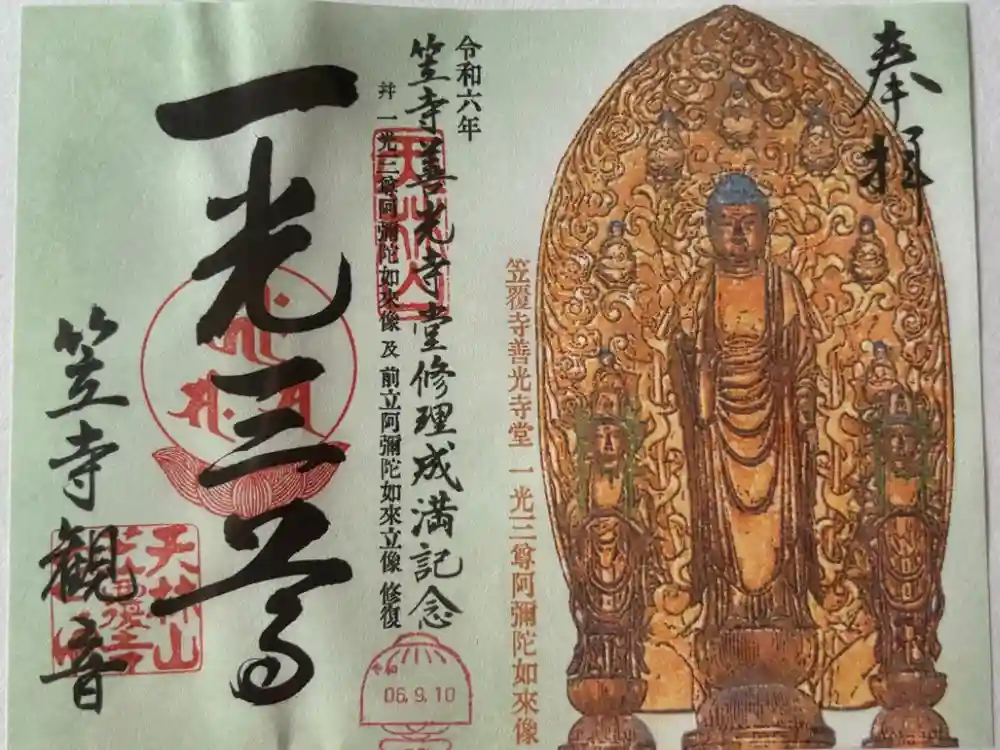 奉拝
笠覆寺善光寺堂 一光三尊阿彌陀如來像
令和六年
笠寺善光寺堂修理成満記念
并 一光三尊阿彌陀如來像 及 前立阿彌陀如來立像 修復
天林山
06.9.10
一光三尊
笠寺観音
天林山
笠覆寺